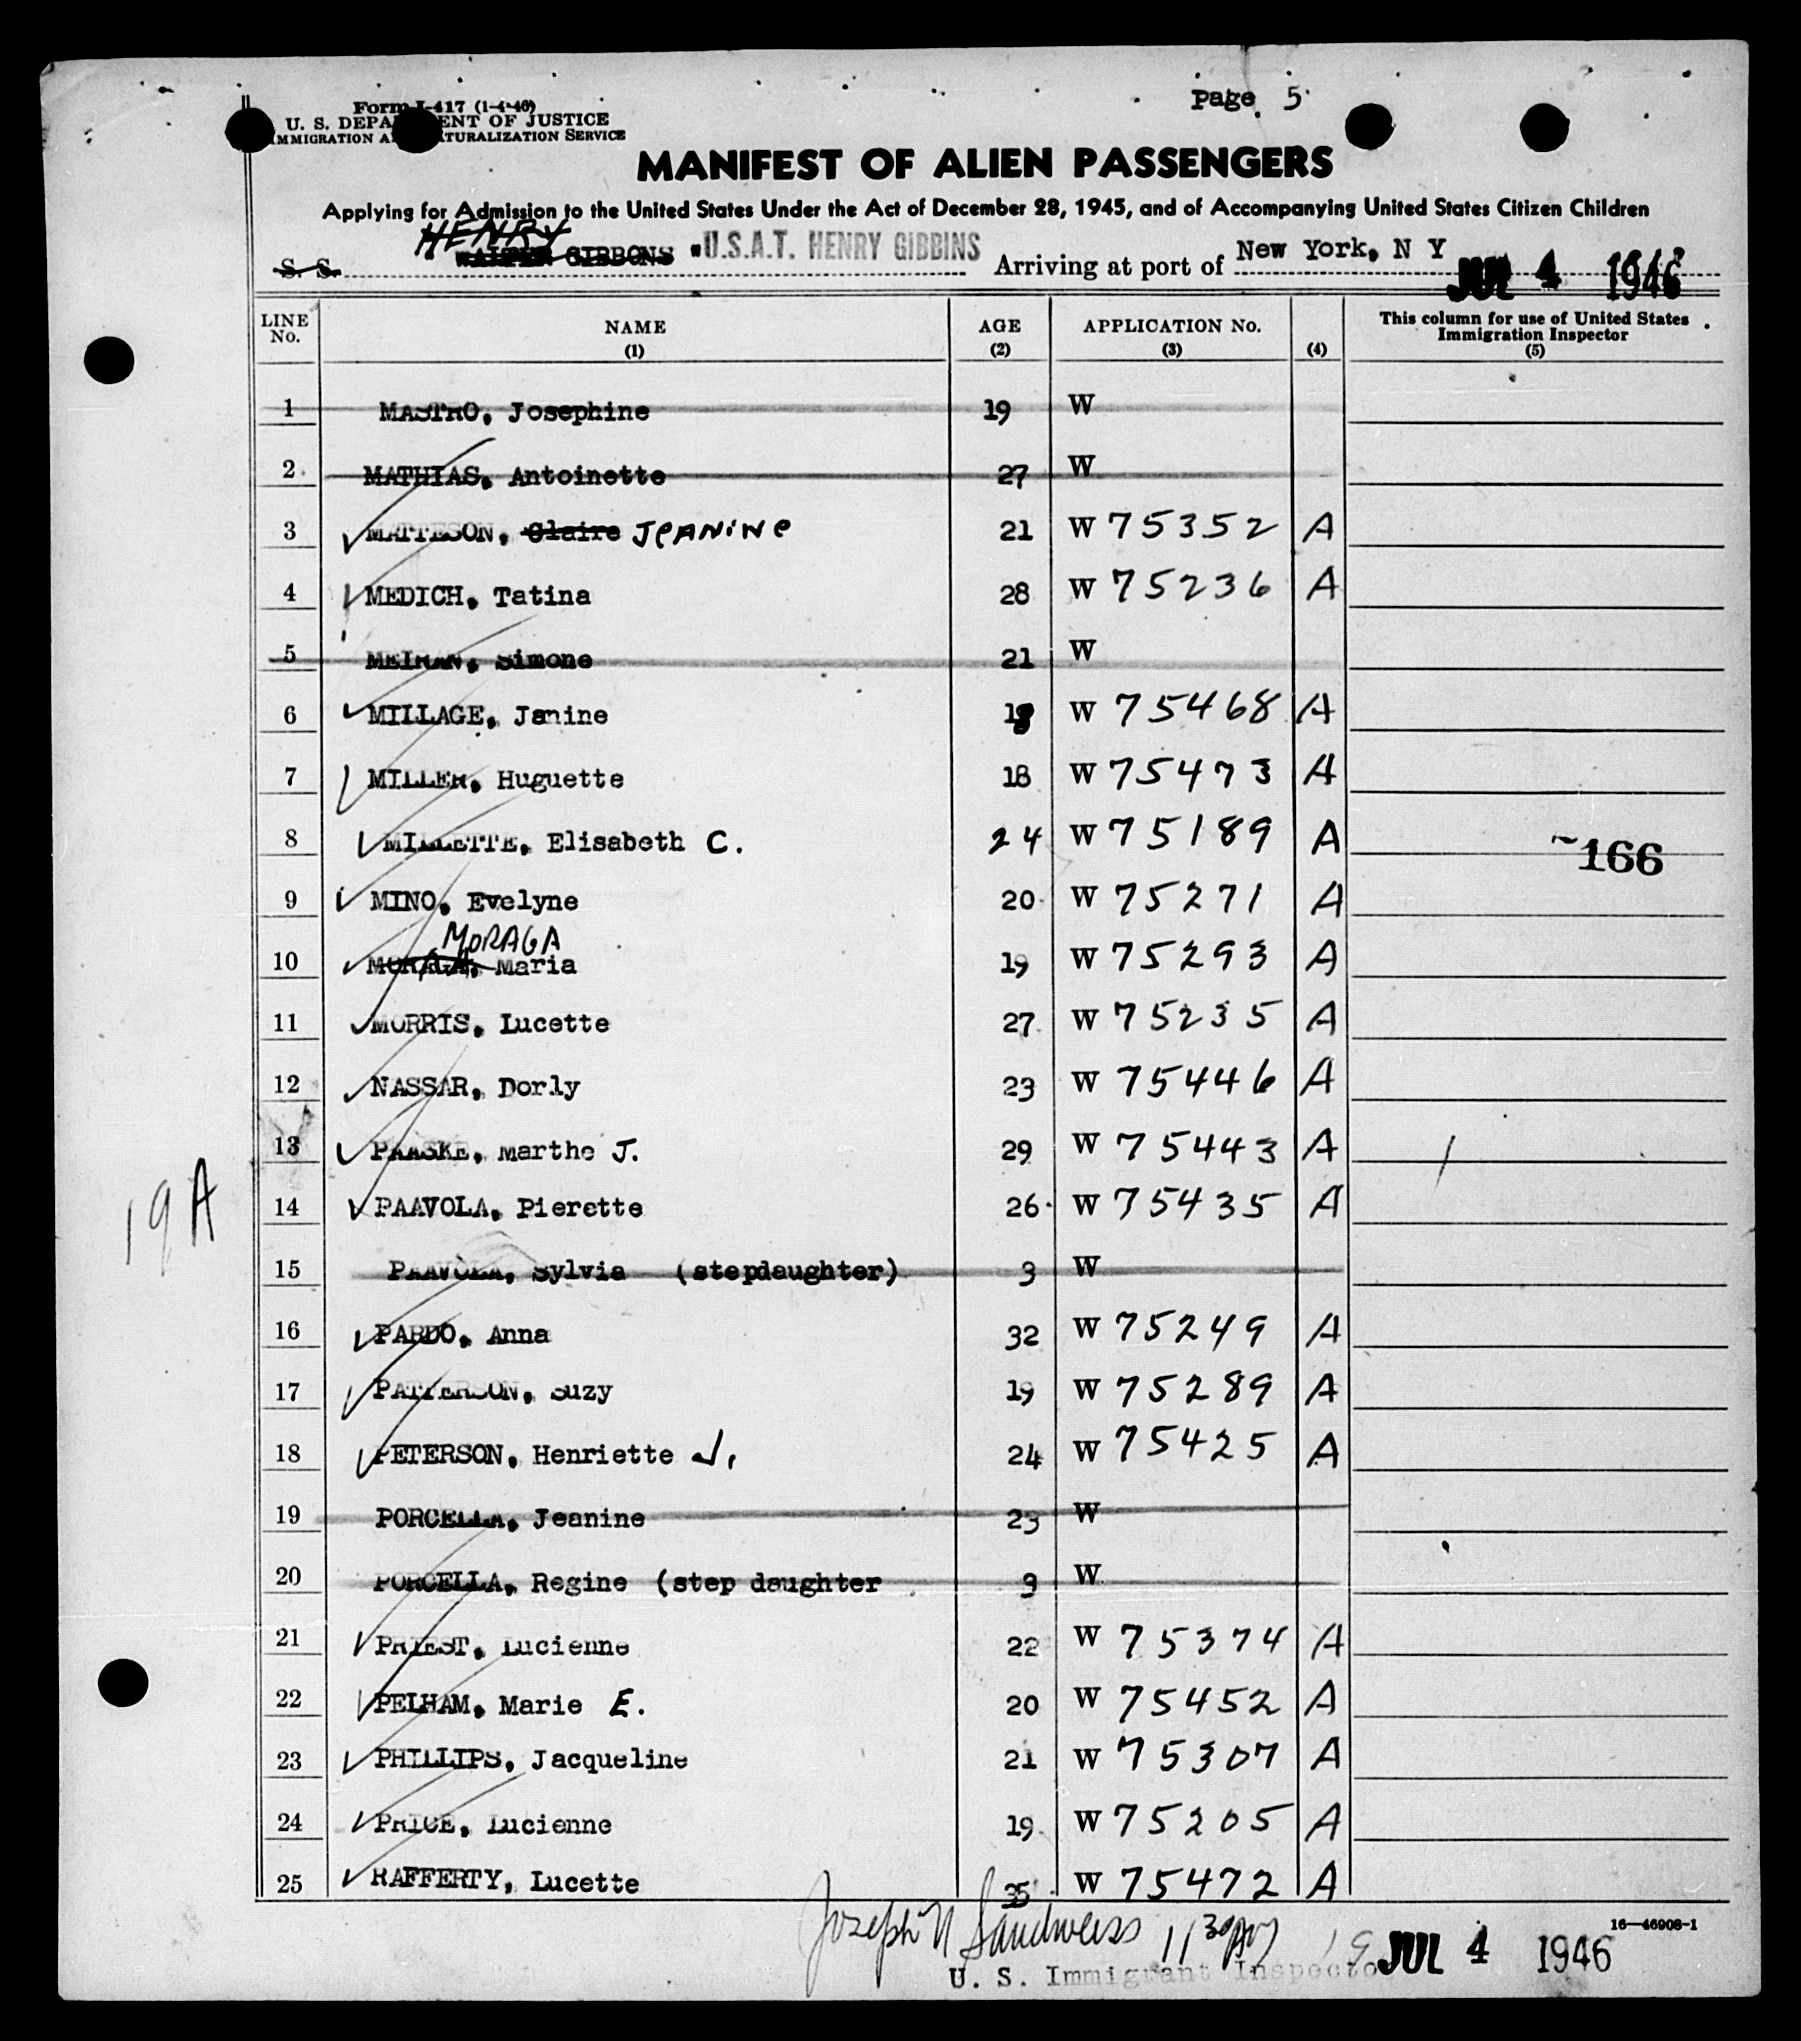 Page 5
Form I-417 (1-4-46)
U. S. DEPA ENT OF JUSTICE
IMMIGRATION A TURALIZATION SERVICE
MANIFEST OF ALIEN PASSENGERS
Applying for Admission to the United States Under the Act of December 28, 1945, and of Accompanying United States Citizen Children
HENRY
S. S. GIBBONS U.S.A.T. HENRY GIBBINS Arriving at port of New York, N Y JUL 4 1946
LINE No. NAME (1) AGE (2) APPLICATION No. (3) (4) This column for use of United States Immigration Inspector (5)
1 MASTRO, Josephine 19 W
2 MATHIAS, Antoinette 27 W
3 MATTESON, Claire JEANINE 21 W 75352 A
4 MEDICH, Tatina 28 W 75236 A
5 MEIRAN, Simone 21 W
6 MILLAGE, Janine 18 W 75468 A
7 MILLER, Huguette 18 W 75473 A
8 MILLETTE, Elisabeth C. 24 W 75189 A 166
9 MINO, Evelyne 20 W 75271 A
MORAGA
10 Maria 19 W 75293 A
11 MORRIS, Lucette 27 W 75235 A
12 NASSAR, Dorly 23 W 75446 A
13 PAASKE, Marthe J. 29 W 75443 A
19 A
14 PAAVOLA, Pierette 26 W 75435 A
15 PAAVOLA, Sylvia (stepdaughter) 3 W
16 PARDO, Anna 32 W 75249 A
17 PATTERSON, Suzy 19 W 75289 A
18 PETERSON, Henriette J. 24 W 75425 A
19 PORCELLA, Jeanine 23 W
20 PORCELLA, Regine (step daughter 9 W
21 PRIEST, Lucienne 22 W 75374 A
22 PELHAM, Marie E. 20 W 75452 A
23 PHILLIPS, Jacqueline 21 W 75307 A
24 PRICE, Lucienne 19 W 75205 A
25 RAFFERTY, Lucette 35 W 75472 A
16—46908-1
Joseph N Sandweiss 11 30 AM
U. S. Immigrant Inspecto JUL 4 1946